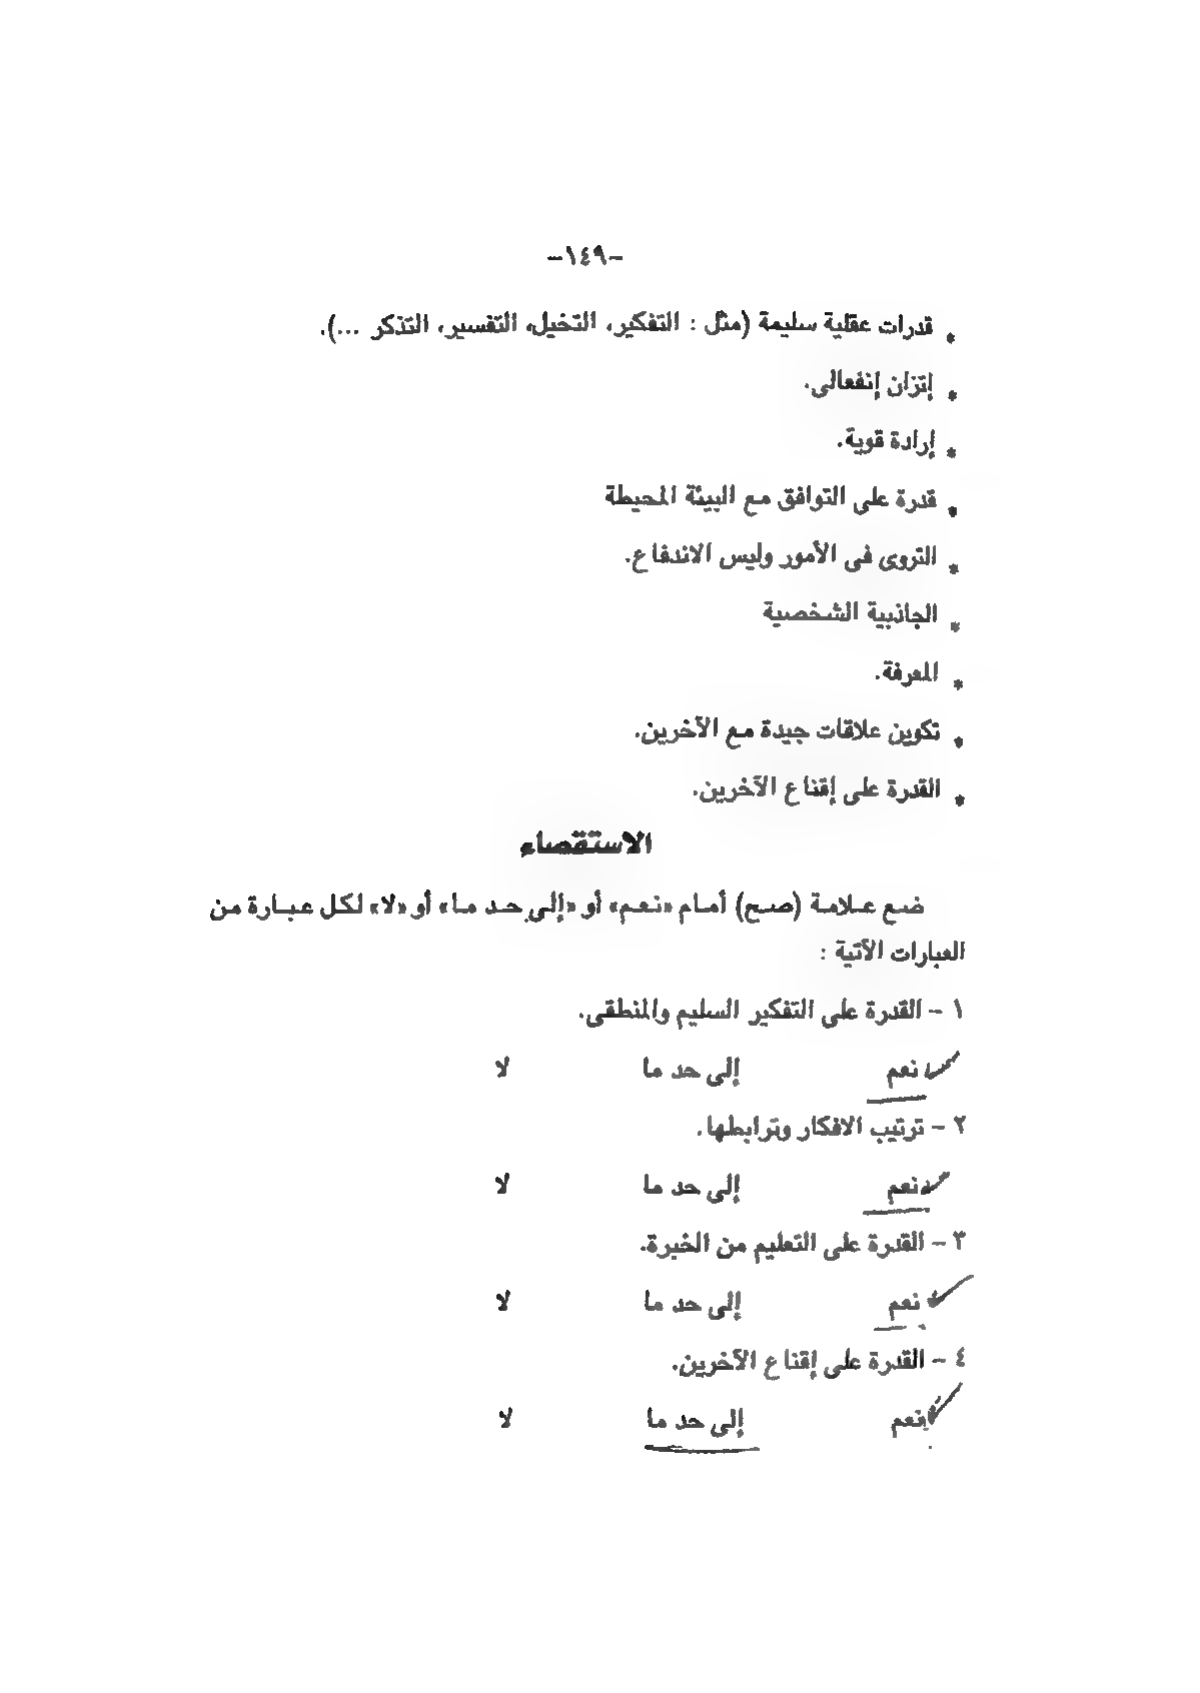 -١٤٩-
* قدرات عقلية سليمة (مثل : التفكير، التخيل، التفسير، التذكر ...).
* إتزان إنفعالى.
* إرادة قوية.
* قدرة على التوافق مع البيئة المحيطة
* التروى فى الأمور وليس الاندفاع.
* الجاذبية الشخصية
* المعرفة.
* تكوين علاقات جيدة مع الآخرين.
* القدرة على إقناع الآخرين.
الاستقصاء
ضع علامة (صح) أمام «نعم» أو «إلى حد ما» أو «لا» لكل عبارة من
العبارات الآتية :
١ - القدرة على التفكير السليم والمنطقى.
نعم إلى حد ما لا
٢ - ترتيب الافكار وترابطها.
نعم إلى حد ما لا
٣ - القدرة على التعليم من الخبرة.
نعم إلى حد ما لا
٤ - القدرة على إقناع الآخرين.
نعم إلى حد ما لا